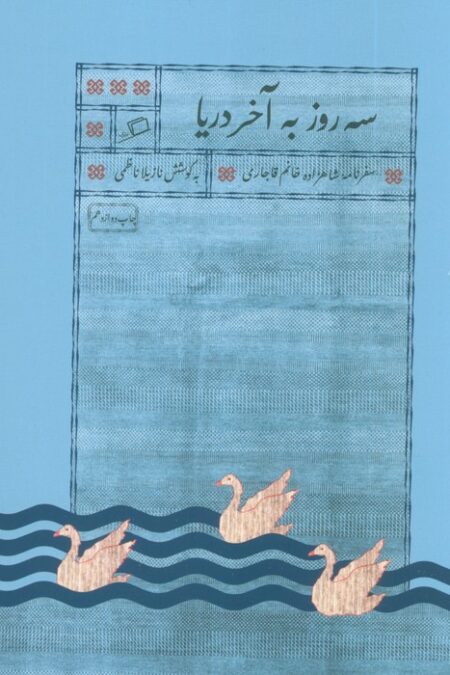 سه روز به آخر دریا
سفرنامه شاهزاده خانم قاجاری
به کوشش نازیلا ناظمی
چاپ دوازدهم